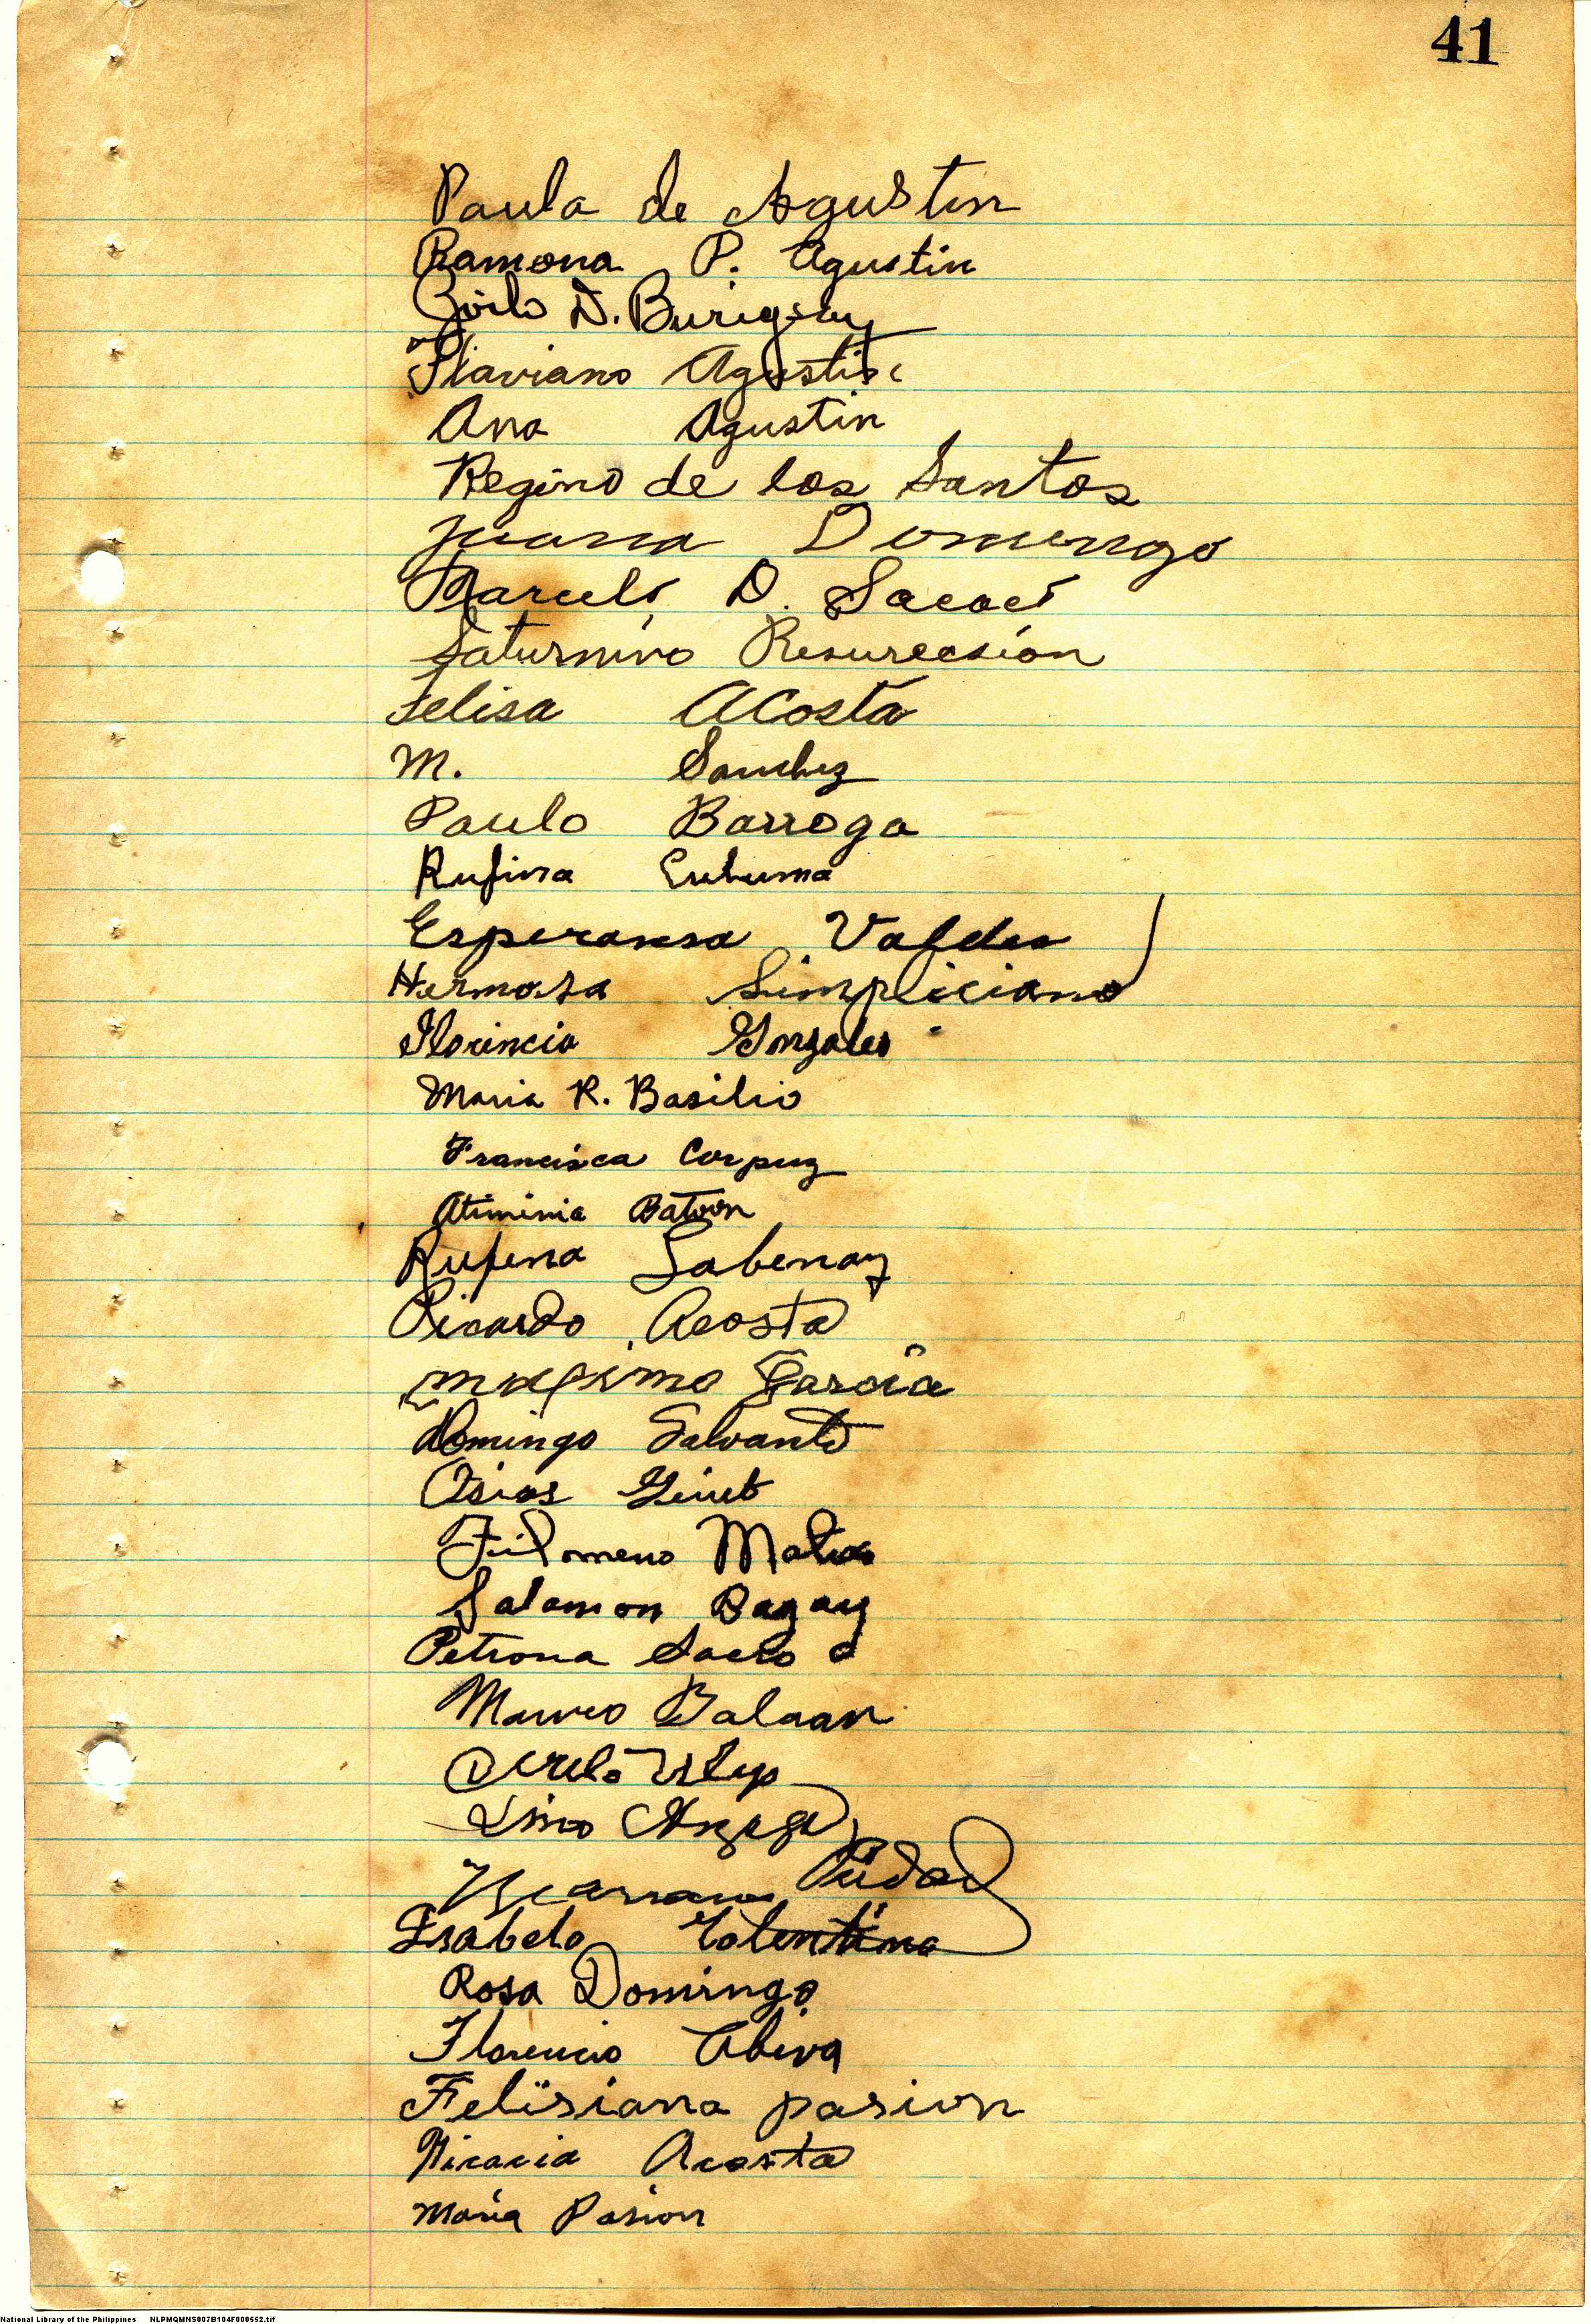 41
Paula de Agustin
Ramona P. Agustin
Zoilo D. Burigsay
Flaviano Agustin
Ana Agustin
Regino de los Santos
Juana Domingo
Marcelo D. Sacaci
Saturnino Resurecsion
Felisa Acosta
M. Sanchez
Paulo Barroga
Rufina
Esperansa Valdes
Hermosa Simpliciano
Florencia Gonzales
Maria R. Basilio
Francisca Corpuz
Atiminia Batoon
Rufina Labenay
Ricardo Acosta
Maximo Garcia
Domingo Salvante
Osias
Filomeno Matias
Salamon Dagay
Petrona
Mauro Balaan
Lino
Piedad
Isabelo Tolentino
Rosa Domingo
Florencio Abiva
Felisiana pasion
Nicacia Acosta
Maria Pasion
National Library of the Philippines NLPMQMNS007B104F000552.tif